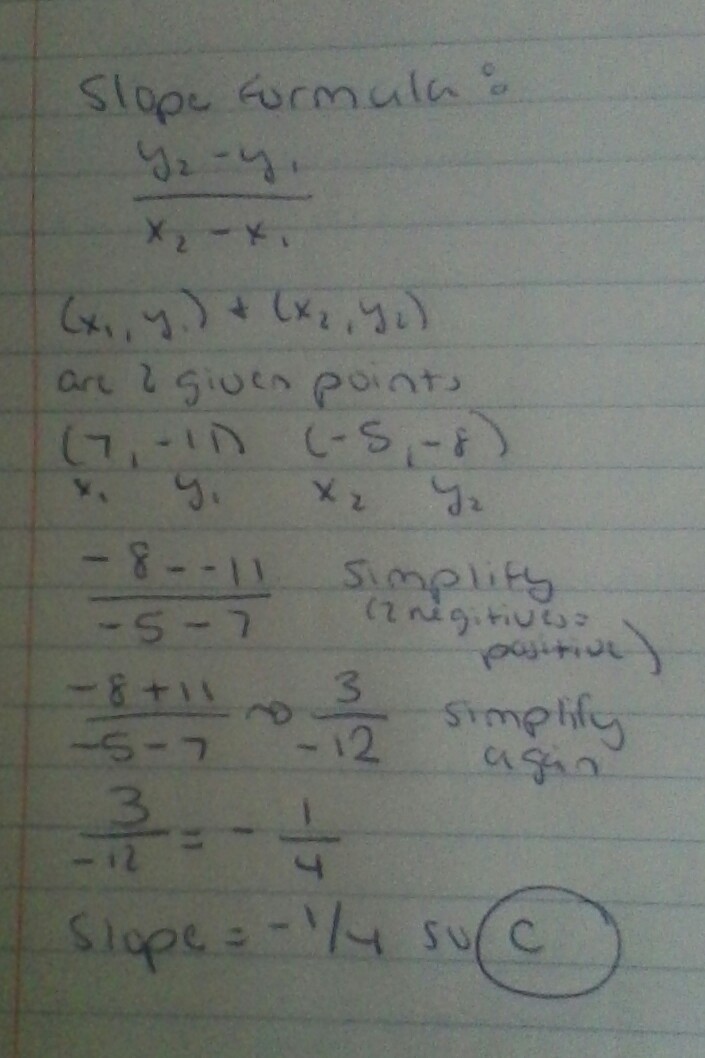 Slope formula:
y₂ - y₁
x₂ - x₁
(x₁, y₁) + (x₂, y₂)
are 2 given points
(7, -11) (-5, -8)
x₁ y₁ x₂ y₂
-8 - -11 simplify
-5 - 7 (2 negitives =
positive)
-8 + 11 → 3 simplify
-5 - 7 -12 again
3 = - 1
-12 4
Slope = -1/4 so C